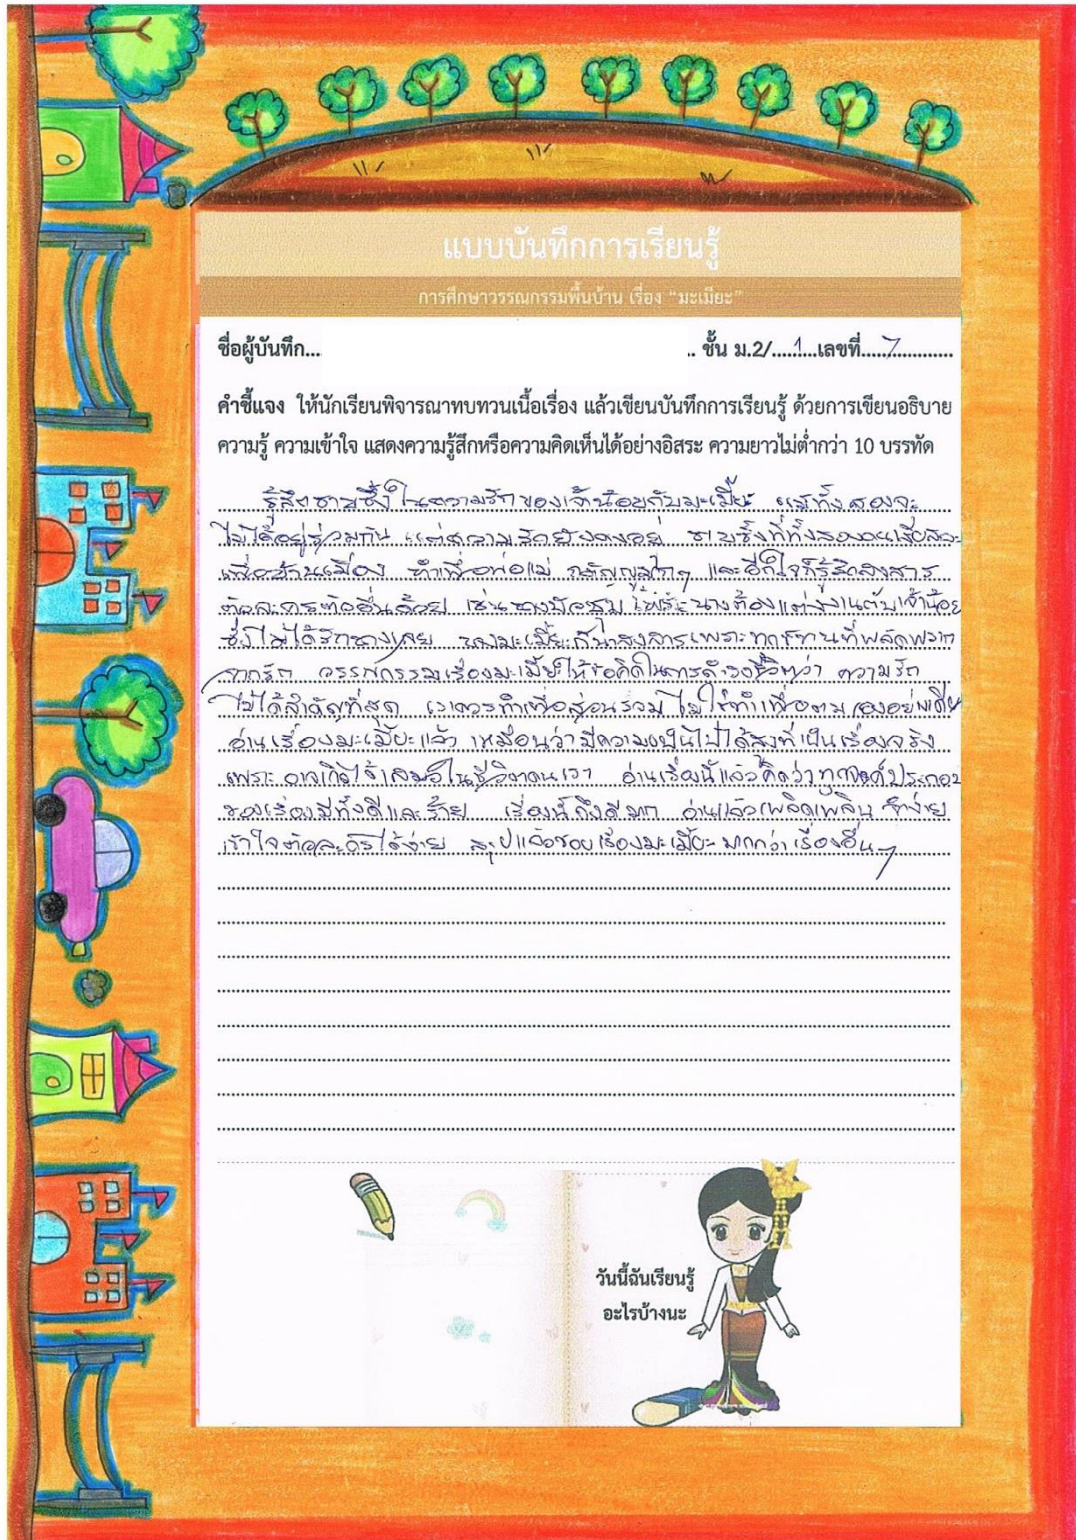 แบบบันทึกการเรียนรู้
การศึกษาวรรณกรรมพื้นบ้าน เรื่อง “มะเมียะ”
ชื่อผู้บันทึก... .. ชั้น ม.2/.....1....เลขที่.....7............
คำชี้แจง ให้นักเรียนพิจารณาทบทวนเนื้อเรื่อง แล้วเขียนบันทึกการเรียนรู้ ด้วยการเขียนอธิบาย
ความรู้ ความเข้าใจ แสดงความรู้สึกหรือความคิดเห็นได้อย่างอิสระ ความยาวไม่ต่ำกว่า 10 บรรทัด
รู้สึกซาบซึ้งในความรักของเจ้าน้อยกับมะเมี๊ยะ แม้ทั้งสองจะ
ไม่ได้อยู่ร่วมกัน แต่ความรักยังคงอยู่ ซาบซึ้งที่ทั้งสองยอมเสียสละ
เพื่อบ้านเมือง ทำเพื่อพ่อแม่ กตัญญูมากๆ และอีกใจก็รู้สึกสงสาร
ตัวละครตัวอื่นด้วย เช่นนางบัวชุม เพราะนางต้องแต่งงานกับเจ้าน้อย
ซึ่งไม่ได้รักนางเลย นางมะเมี๊ยะก็น่าสงสารเพราะทุกข์ทนที่พลัดพราก
จากรัก วรรณกรรมเรื่องมะเมี๊ยะให้ข้อคิดในการดำรงชีวิตว่า ความรัก
ไม่ได้สำคัญที่สุด เราควรทำเพื่อส่วนรวม ไม่ใช่ทำเพื่อตนเองอย่างเดียว
อ่านเรื่องมะเมี๊ยะแล้ว เหมือนว่ามีความเป็นไปได้สูงที่เป็นเรื่องจริง
เพราะ อาจเกิดได้เสมอในชีวิตคนเรา อ่านเรื่องนี้แล้วคิดว่าทุกองค์ประกอบ
ของเรื่องมีทั้งดีและร้าย เรื่องนี้ถึงดีมาก อ่านแล้วเพลิดเพลิน จำง่าย
เข้าใจตัวละครได้ง่าย สรุปแล้วชอบเรื่องมะเมี๊ยะมากกว่าเรื่องอื่นๆ
วันนี้ฉันเรียนรู้
อะไรบ้างนะ